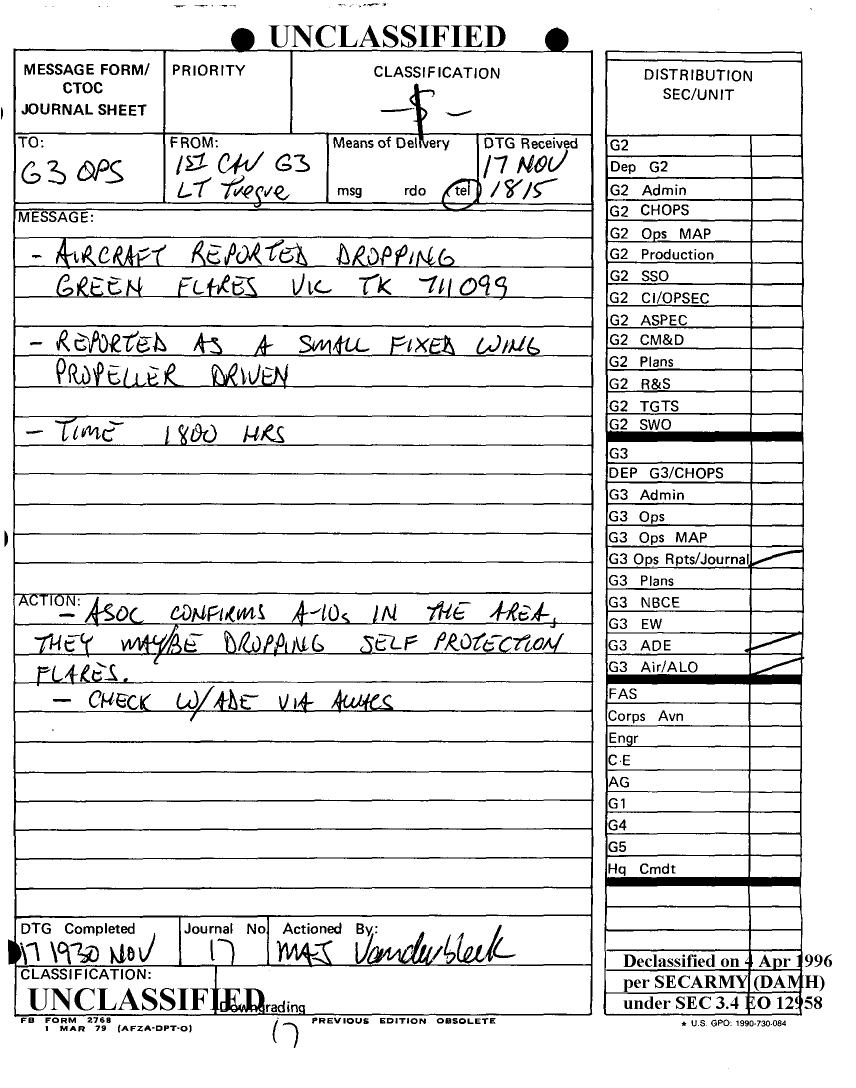 UNCLASSIFIED
MESSAGE FORM/
CTOC
JOURNAL SHEET
PRIORITY
CLASSIFICATION
-S-
TO:
G3 OPS
FROM:
1ST CAV G3
LT
Means of Delivery
msg rdo tel
DTG Received
17 NOV
1815
MESSAGE:
- AIRCRAFT REPORTED DROPPING
GREEN FLARES VIC TK 711099
- REPORTED AS A SMALL FIXED WING
PROPELLER DRIVEN
- TIME 1800 HRS
ACTION:
- ASOC CONFIRMS A-10s IN THE AREA,
THEY MAY/BE DROPPING SELF PROTECTION
FLARES.
- CHECK W/ADE VIA AWACS
DTG Completed
17 1930 NOV
Journal No.
17
Actioned By:
MAJ Vanderbleek
CLASSIFICATION:
UNCLASSIFIED
Downgrading
FB FORM 2768
1 MAR 79 (AFZA-DPT-O)
PREVIOUS EDITION OBSOLETE
17
DISTRIBUTION
SEC/UNIT
G2
Dep G2
G2 Admin
G2 CHOPS
G2 Ops MAP
G2 Production
G2 SSO
G2 CI/OPSEC
G2 ASPEC
G2 CM&D
G2 Plans
G2 R&S
G2 TGTS
G2 SWO
G3
DEP G3/CHOPS
G3 Admin
G3 Ops
G3 Ops MAP
G3 Ops Rpts/Journal
G3 Plans
G3 NBCE
G3 EW
G3 ADE
G3 Air/ALO
FAS
Corps Avn
Engr
C-E
AG
G1
G4
G5
Hq Cmdt
Declassified on 4 Apr 1996
per SECARMY (DAMH)
under SEC 3.4 EO 12958
★ U.S. GPO: 1990-730-084